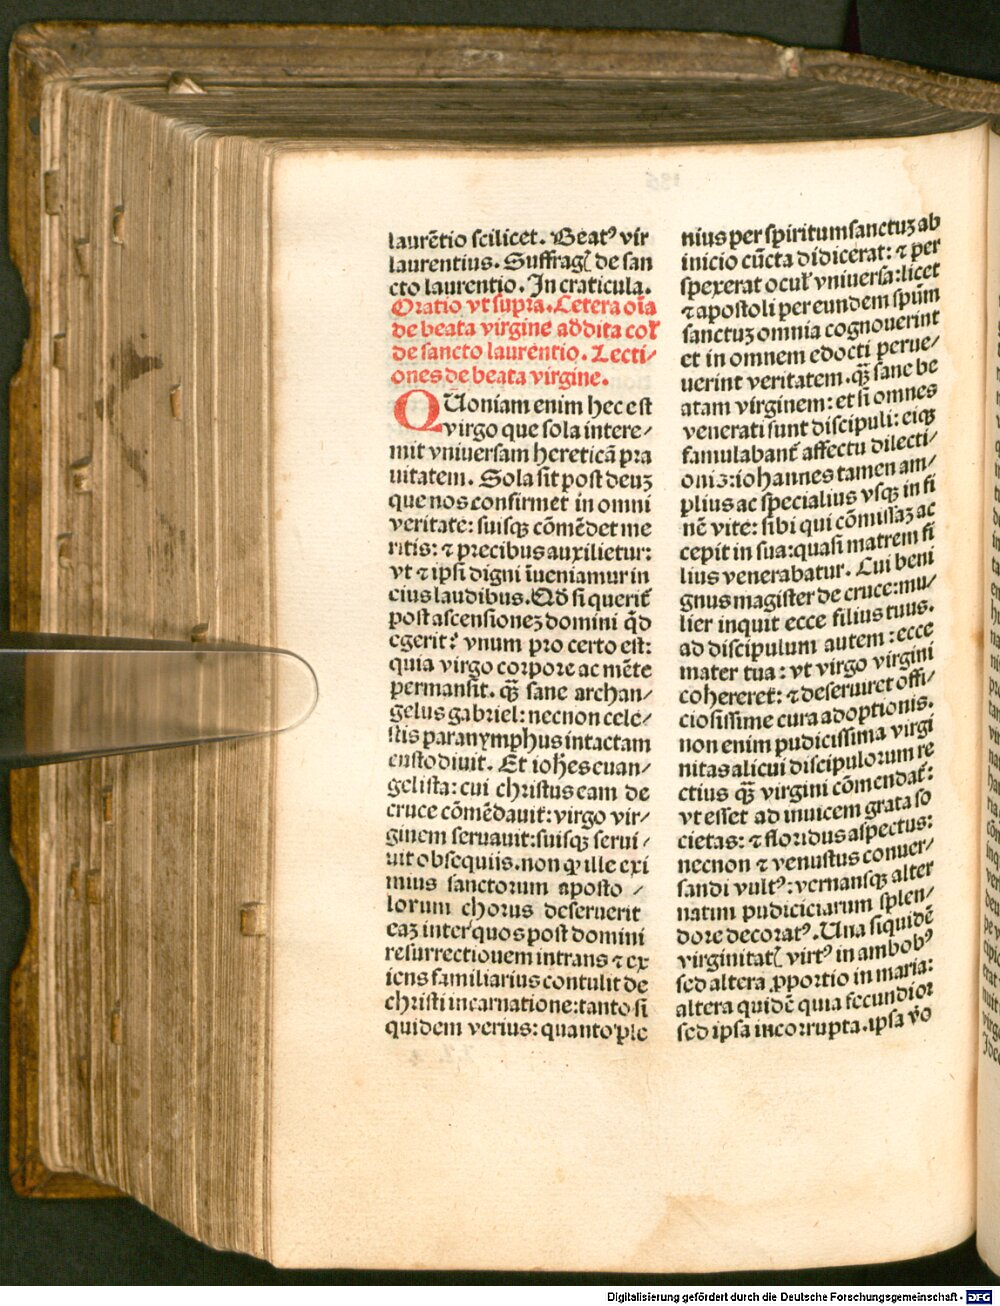 laurētio scilicet. Beatꝰ vir
laurentius. Suffragꝭ de san
cto laurentio. In craticula.
Oratio vt supra. Cetera oīa
de beata virgine addita coꝉ
de sancto laurentio. Lecti⸗
ones de beata virgine.
QUoniam enim hec est
virgo que sola intere⸗
mit vniuersam hereticā pra
uitatem. Sola sit post deuꝫ
que nos confirmet in omni
veritate: suisqꝫ cōmēdet me
ritis: ⁊ precibus auxilietur:
vt ⁊ ipsi digni īueniamur in
eius laudibus. Qđ si querit᷑
post ascensioneꝫ domini q̇d
egerit: vnum pro certo est:
quia virgo corpore ac mēte
permansit. qꝫ̄ sane archan⸗
gelus gabriel: necnon cele⸗
stis paranymphus intactam
custodiuit. Et iohēs euan⸗
gelista: cui christus eam de
cruce cōmēdauit: virgo vir⸗
ginem seruauit: suisqꝫ serui⸗
uit obsequiis. non ꝙ ille exi
mius sanctorum aposto ⸗
lorum chorus deseruerit
eaꝫ inter quos post domini
resurrectionem intrans ⁊ ex
iens familiarius contulit de
christi incarnatione: tanto si
quidem verius: quanto ple
nius per spiritum sanctuꝫ ab
inicio cūcta didicerat: ⁊ per
spexerat ocuꝉ vniuersa: licet
⁊ apostoli per eundem spūm
sanctuꝫ omnia cognouerint
et in omnem edocti perue⸗
uerint veritatem. qꝫ̄ sane be
atam virginem: et si omnes
venerati sunt discipuli: eiqꝫ
famulabant᷑ affectu dilecti⸗
onis: iohannes tamen am⸗
plius ac specialius vsqꝫ in fi
nē vite: sibi qui cōmissaꝫ ac
cepit in sua: quasi matrem fi
lius venerabatur. Cui beni
gnus magister de cruce: mu⸗
lier inquit ecce filius tuus.
ad discipulum autem: ecce
mater tua: vt virgo virgini
cohereret: ⁊ deseruiret offi⸗
ciosissime cura adoptionis.
non enim pudicissima virgi
nitas alicui discipulorum re
ctius qꝫ̄ virgini cōmendat᷑:
vt esset ad inuicem grata so
cietas: ⁊ floridus aspectus:
necnon ⁊ venustus conuer⸗
sandi vultꝰ: vernansqꝫ alter
natim pudiciciarum splen⸗
dore decoratꝰ. Una siquidē
virginitatꝭ virtꝰ in ambobꝰ
sed altera ꝓportio in maria:
altera quidē quia fecundior
sed ipsa incorrupta. ipsa v̊o
Digitalisierung gefördert durch die Deutsche Forschungsgemeinschaft - DFG